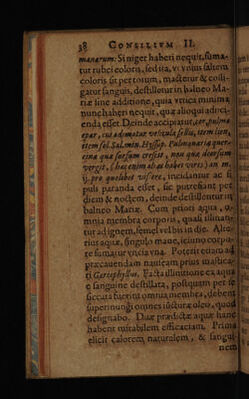 38 CONSILIVM II.
manarum: Si niger haberi nequit, suma-
tur rubei coloris, sed ita, vt vnius saltem
coloris sit per totum, mactetur & colli-
gatur sanguis, destilletur in balneo Ma-
riæ sine additione, quia vrtica minima
nunc haberi nequit, quæ alioqui adici-
enda esset. Deinde accipiatur, cor, pulmo
epar, cui adimatur vesicula fellis, item lien,
item sal. Sal. min. Hyssop. Pulmonariæ quer-
cina quæ sursum crescit, non quæ deorsum
vergit, (hæc enim aliàs habet vires) an m.
ij. pro quolibet viscere, incidantur ac si
puls paranda esset, sic putrefiant per
diem & noctem, deinde destillentur in
balneo Mariæ. Cum priori aqua, o-
mnia membra corporis, quasi illinan-
tur ad ignem, semel vel bis in die. Alte-
rius aquæ, singulo mane, ieiuno corpo-
re sumatur vncia vna. Poterit etiam ad
præcauendam nauseam prius masticar-
i Garyophyllus. Facta illinitione ex aqua
e sanguine destillata, postquam per se
siccata fuerint omnia membra, debent
superinungi omnes iuncturæ oleo, quod
dedimus
habent mirabilem efficaciam. Prima
elicit calorem naturalem, & sangui-
nem